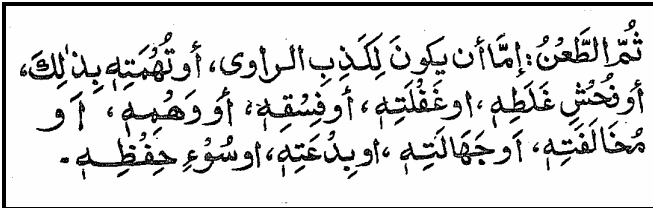 ثُمَّ الطَّعْنُ: إِمَّا أن يكونَ لِكَذِبِ الراوى، أو تُهْمَتِهٖ بِذٰلِكَ،
أو فُحْشِ غَلَطِهٖ، او غَفْلَتِهٖ، أو فِسْقِهٖ، أو وَهْمِهٖ، أو
مُخَالَفَتِهٖ، أو جَهَالَتِهٖ، او بِدْعَتِهٖ، او سُوْءِ حِفْظِهٖ۔